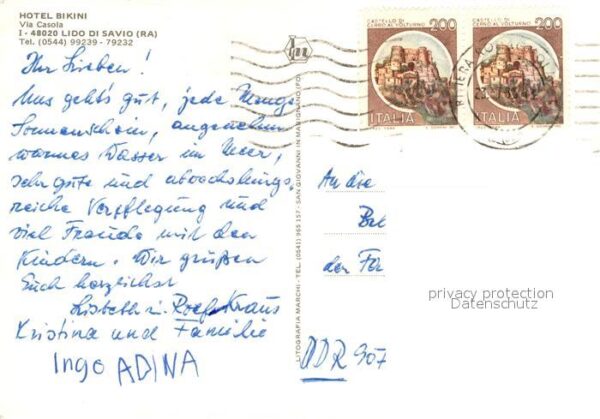 HOTEL BIKINI
Via Casola
I - 48020 LIDO DI SAVIO (RA)
Tel. (0544) 99239 - 79232
Ihr Lieben!
Uns geht's gut, jede Menge
Sonnenschein, angenehm
warmes Wasser im Meer,
sehr gute und abwechslungs-
reiche Verpflegung und
viel Freude mit den
Kindern. Wir grüßen
Euch herzlichst
Lisbeth u. Rolf Kraus
Kristina und Familie
Ingo ADINA
LITOGRAFIA MARCHI - TEL. (0541) 965 157 - SAN GIOVANNI IN MARIGNANO (FO)
CASTELLO DI
CERRO AL VOLTURNO
200
ITALIA
CASTELLO DI
CERRO AL VOLTURNO
200
ITALIA
RIVIERA
An die
der
DDR 907
privacy protection
Datenschutz